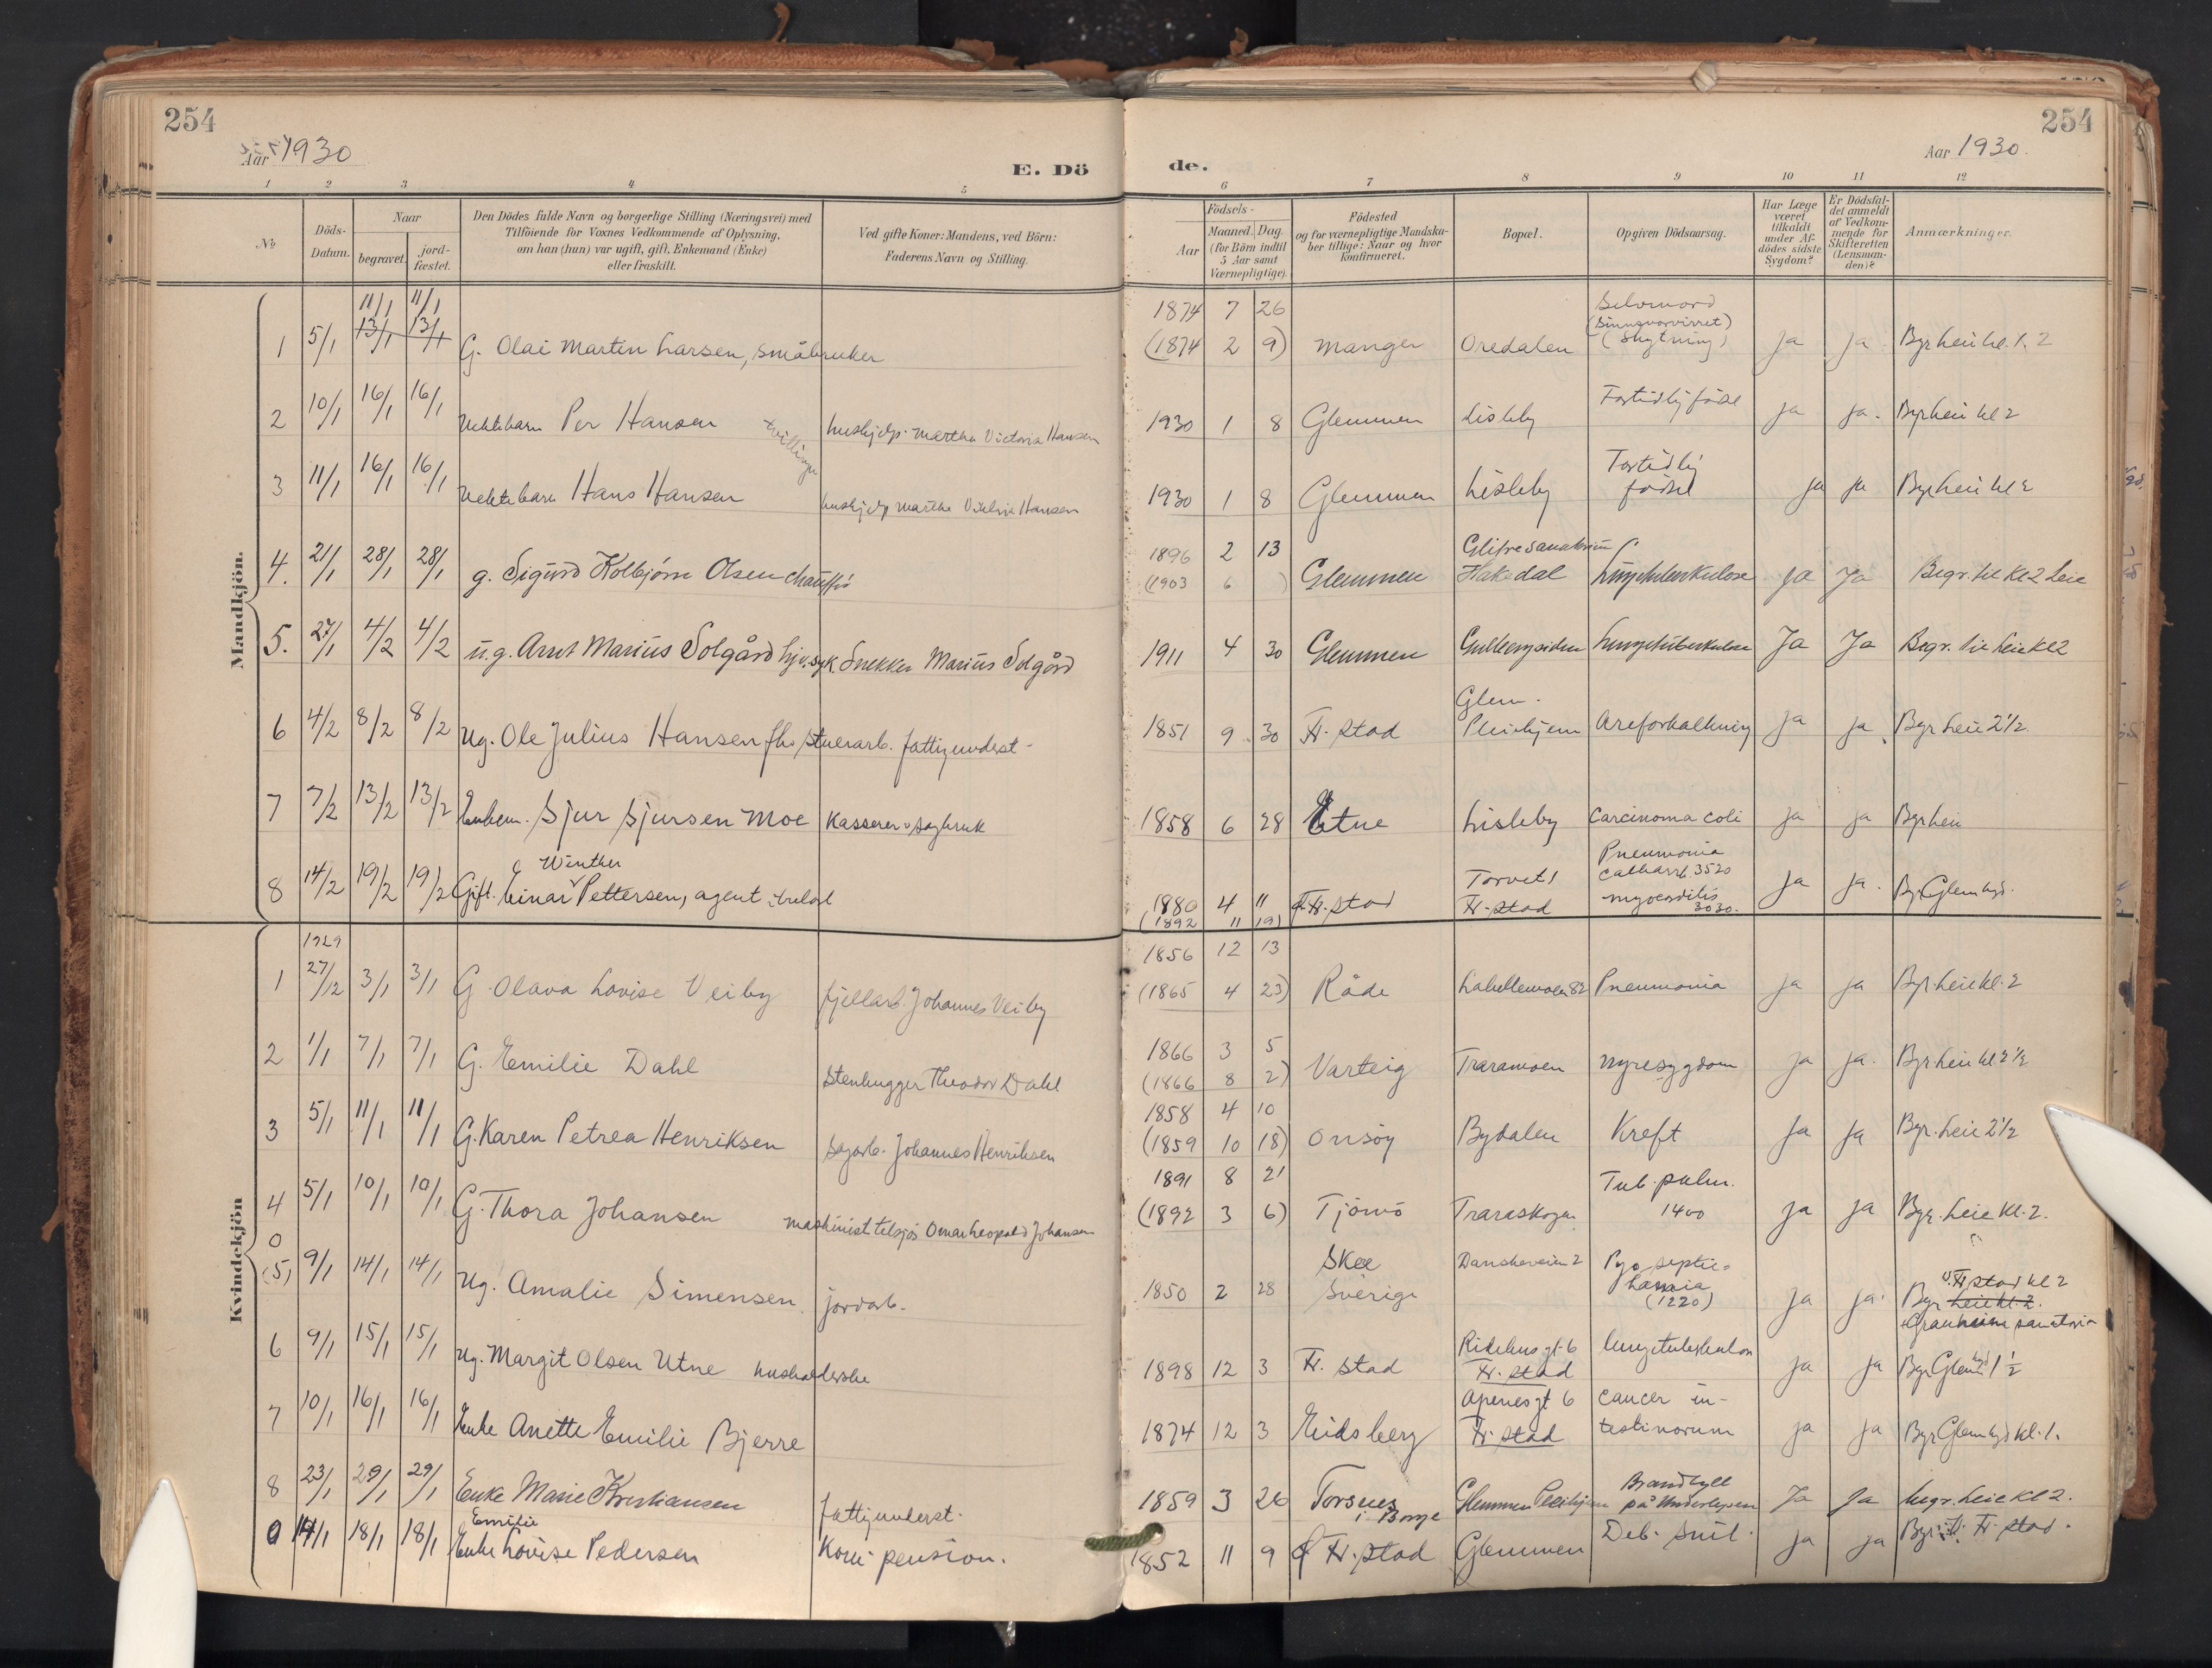 254
254
Aar 1930
E. Dö
de.
Aar 1930.
1 2 3 4 5 6 7 8 9 10 11 12
№
Döds-Datum.
Naar
begravet.
jord-fæstet.
Den Dödes fulde Navn og borgerlige Stilling (Næringsvei) med
Tilföiende for Voxnes Vedkommende af Oplysning,
om han (hun) var ugift, gift, Enkemand (Enke)
eller fraskilt.
Ved gifte Koner: Mandens, ved Börn:
Faderens Navn og Stilling.
Födsels-
Aar
Maaned. Dag.
(for Börn indtil
5 Aar samt
Værnepligtige).
Födested
og for værnepligtige Mandska-
ber tillige: Naar og hvor
konfirmeret.
Bopæl.
Opgiven Dödsaarsag.
Har Læge
været
tilkaldt
under Af-
dödes sidste
Sygdom?
Er Dödsfal-
det anmeldt
af Vedkom-
mende for
Skifteretten
(Lensman-
den)?
Anmærkninger.
Mandkjön.
11/1 11/1 1874 7 26 Selvmord
(Sinnsforvirret)
1 5/1 13/1 13/1 G. Olai Martin Larsen, småbruker (1874 2 9) Manger Oredalen (Skytning) Ja Ja Bgr. Leie kl. 1. 2
2 10/1 16/1 16/1 Uektebarn Per Hansen tvillinger hushjelp. Martha Victoria Hansen 1930 1 8 Glemmen Lisleby Fortidlig födsel Ja Ja. Bgr Leie kl 2
3 11/1 16/1 16/1 Uektebarn Hans Hansen hushjelp Martha Victoria Hansen 1930 1 8 Glemmen Lisleby Fortidlig födsel Ja Ja Bgr Leie kl 2
1896 2 13 Glitre sanatorium
4. 21/1 28/1 28/1 g. Sigurd Kolbjörn Olsen chaufför (1903 6 ) Glemmen Hakadal Lungetuberkulose Ja Ja Begr. Lie Kl 2 Leie
5. 27/1 4/2 4/2 u.g. Arnt Marius Solgård hjv. syk. Snekker Marius Solgård 1911 4 30 Glemmen Gulbergsiden Lungetuberkulose Ja Ja Begr. Lie Leie Kl 2
6 4/2 8/2 8/2 Ug. Ole Julius Hansen fhv. stuerarb. fattigunderst. 1851 9 30 Fr. stad Glem. Pleiehjem Areforkalkning Ja Ja Bgr Leie 2 1/2
7 7/2 13/2 13/2 Enkem. Sjur Sjursen Moe Kasserer v sagbruk 1858 6 28 Etne Lisleby Carcinoma coli Ja Ja Bgr Leie
Winther Pneumonia
8 14/2 19/2 19/2 Gift. Einar Pettersen, agent i trelast 1880 4 11 Fr. stad Torvet 1 Fr. stad catharrh. 3520 myocarditis 3030. Ja Ja. Bgr Glem bygd.
(1892 11 19)
Kvindekjön
1929 1856 12 13
1 27/12 3/1 3/1 G. Olava Lovise Veiby fjellarb. Johannes Veiby (1865 4 23) Råde Labellemoen 82 Pneumonia Ja Ja Bgr. Leie kl. 2
1866 3 5
2 1/1 7/1 7/1 G. Emilie Dahl Stenhugger Theodor Dahl (1866 8 2) Varteig Traramoen nyresygdom Ja Ja. Bgr Leie kl 2 1/2
1858 4 10
3 5/1 11/1 11/1 G. Karen Petrea Henriksen Sagarb. Johannes Henriksen (1859 10 18) Onsöy Bydalen Kreft Ja Ja Bgr. Leie 2 1/2
1891 8 21 Tub. pulm.
4 5/1 10/1 10/1 G. Thora Johansen maskinist tilsjös Omar Leopold Johansen (1892 3 6) Tjömö Traraskogen 1400 Ja Ja Bgr. Leie Kl. 2.
0
(5) 9/1 14/1 14/1 Ug. Amalie Simensen jordarb. 1850 2 28 Skee Sverige Danskeveien 2 Pyo septic-hæmia (1220) Ja Ja Bgr Leie kl. 2. v. Fr. stad kl 2
Granheim sanatorie
6 9/1 15/1 15/1 Ug. Margit Olsen Utne husholderske 1898 12 3 Fr. stad Ridehus gt. 6 Fr. stad lungetuberkulose Ja Ja Bgr Glem bygd 1 1/2
7 10/1 16/1 16/1 Enke Anette Emilie Bjerre 1874 12 3 Eidsberg Apenesgt 6 Fr. stad cancer in-testinorum Ja Ja Bgr Glem bygd kl. 1.
8 23/1 29/1 29/1 Enke Marie Kristiansen fattigunderst. 1859 3 26 Torsnes i Borge Glemmen Pleiehjem Brandbyll på Underleppen Ja Ja begr. Leie Kl 2.
Emilie
9 14/1 18/1 18/1 Enke Lovise Pedersen Kom. pension. 1852 11 9 Fr. stad Glemmen Deb. Senil. Ja Ja Bgr. Fr. stad.